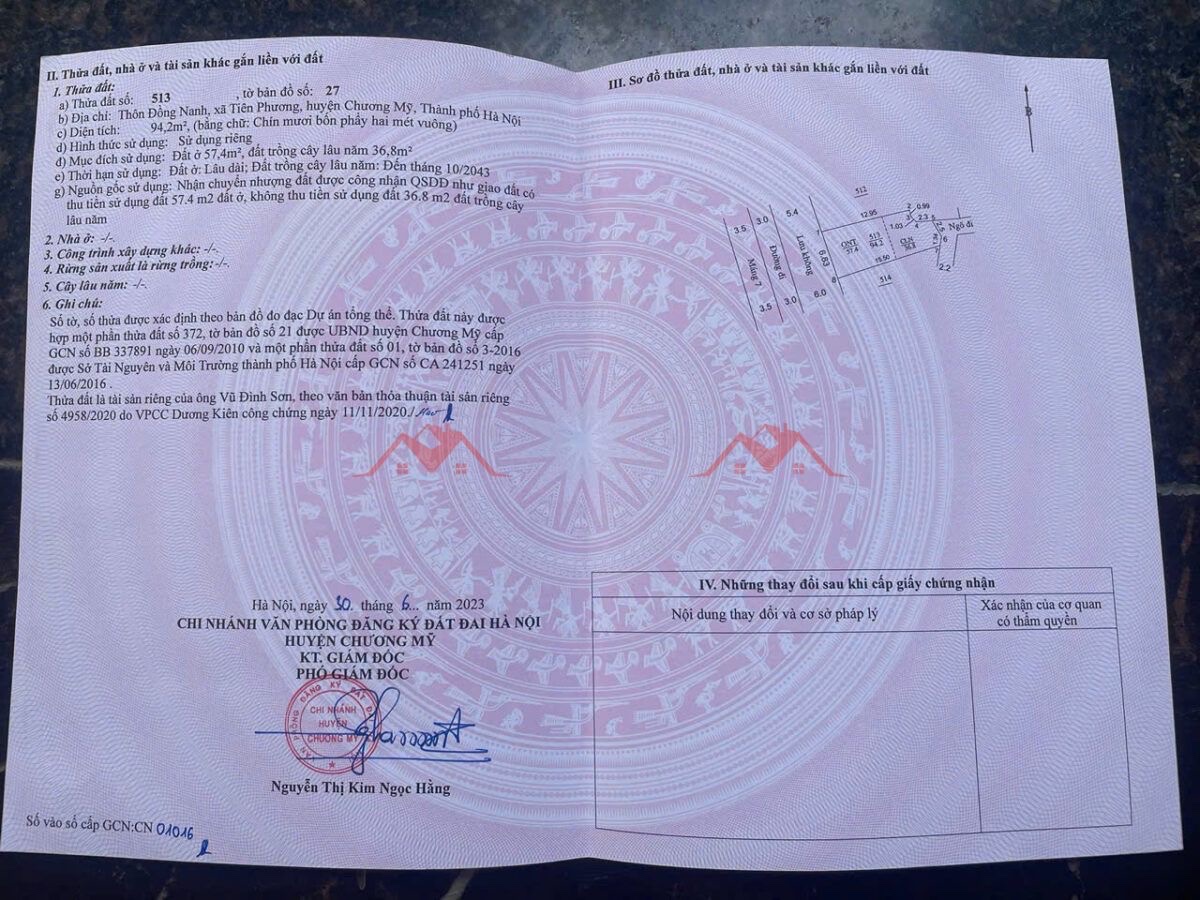 II. Thửa đất, nhà ở và tài sản khác gắn liền với đất
1. Thửa đất:
a) Thửa đất số: 513 , tờ bản đồ số: 27
b) Địa chỉ: Thôn Đồng Nanh, xã Tiên Phương, huyện Chương Mỹ, Thành phố Hà Nội
c) Diện tích: 94,2m², (bằng chữ: Chín mươi bốn phẩy hai mét vuông)
d) Hình thức sử dụng: Sử dụng riêng
đ) Mục đích sử dụng: Đất ở 57,4m², đất trồng cây lâu năm 36,8m²
e) Thời hạn sử dụng: Đất ở: Lâu dài; Đất trồng cây lâu năm: Đến tháng 10/2043
g) Nguồn gốc sử dụng: Nhận chuyển nhượng đất được công nhận QSDĐ như giao đất có
thu tiền sử dụng đất 57.4 m2 đất ở, không thu tiền sử dụng đất 36.8 m2 đất trồng cây
lâu năm
2. Nhà ở: -/-.
3. Công trình xây dựng khác: -/-.
4. Rừng sản xuất là rừng trồng: -/-.
5. Cây lâu năm: -/-.
6. Ghi chú:
Số tờ, số thửa được xác định theo bản đồ đo đạc Dự án tổng thể. Thửa đất này được
hợp một phần thửa đất số 372, tờ bản đồ số 21 được UBND huyện Chương Mỹ cấp
GCN số BB 337891 ngày 06/09/2010 và một phần thửa đất số 01, tờ bản đồ số 3-2016
được Sở Tài Nguyên và Môi Trường thành phố Hà Nội cấp GCN số CA 241251 ngày
13/06/2016 .
Thửa đất là tài sản riêng của ông Vũ Đình Sơn, theo văn bản thỏa thuận tài sản riêng
số 4958/2020 do VPCC Dương Kiên công chứng ngày 11/11/2020./
Hà Nội, ngày 30 tháng 6... năm 2023
CHI NHÁNH VĂN PHÒNG ĐĂNG KÝ ĐẤT ĐAI HÀ NỘI
HUYỆN CHƯƠNG MỸ
KT. GIÁM ĐỐC
PHÓ GIÁM ĐỐC
CHI NHÁNH
HUYỆN
CHƯƠNG MỸ
Nguyễn Thị Kim Ngọc Hằng
Số vào sổ cấp GCN:CN 01016
III. Sơ đồ thửa đất, nhà ở và tài sản khác gắn liền với đất
B
512
3.5 3.0 5.4 12.95 2 0.99
3 2.3 5
1.03 4
Ngõ đi
Máng 7 Đường đi Lưu không 6.83
ONT
57.4
513
94.2
CLN
36.8
6
7
8
15.50
2.2
514
3.5 3.0 6.0
IV. Những thay đổi sau khi cấp giấy chứng nhận
Nội dung thay đổi và cơ sở pháp lý
Xác nhận của cơ quan
có thẩm quyền